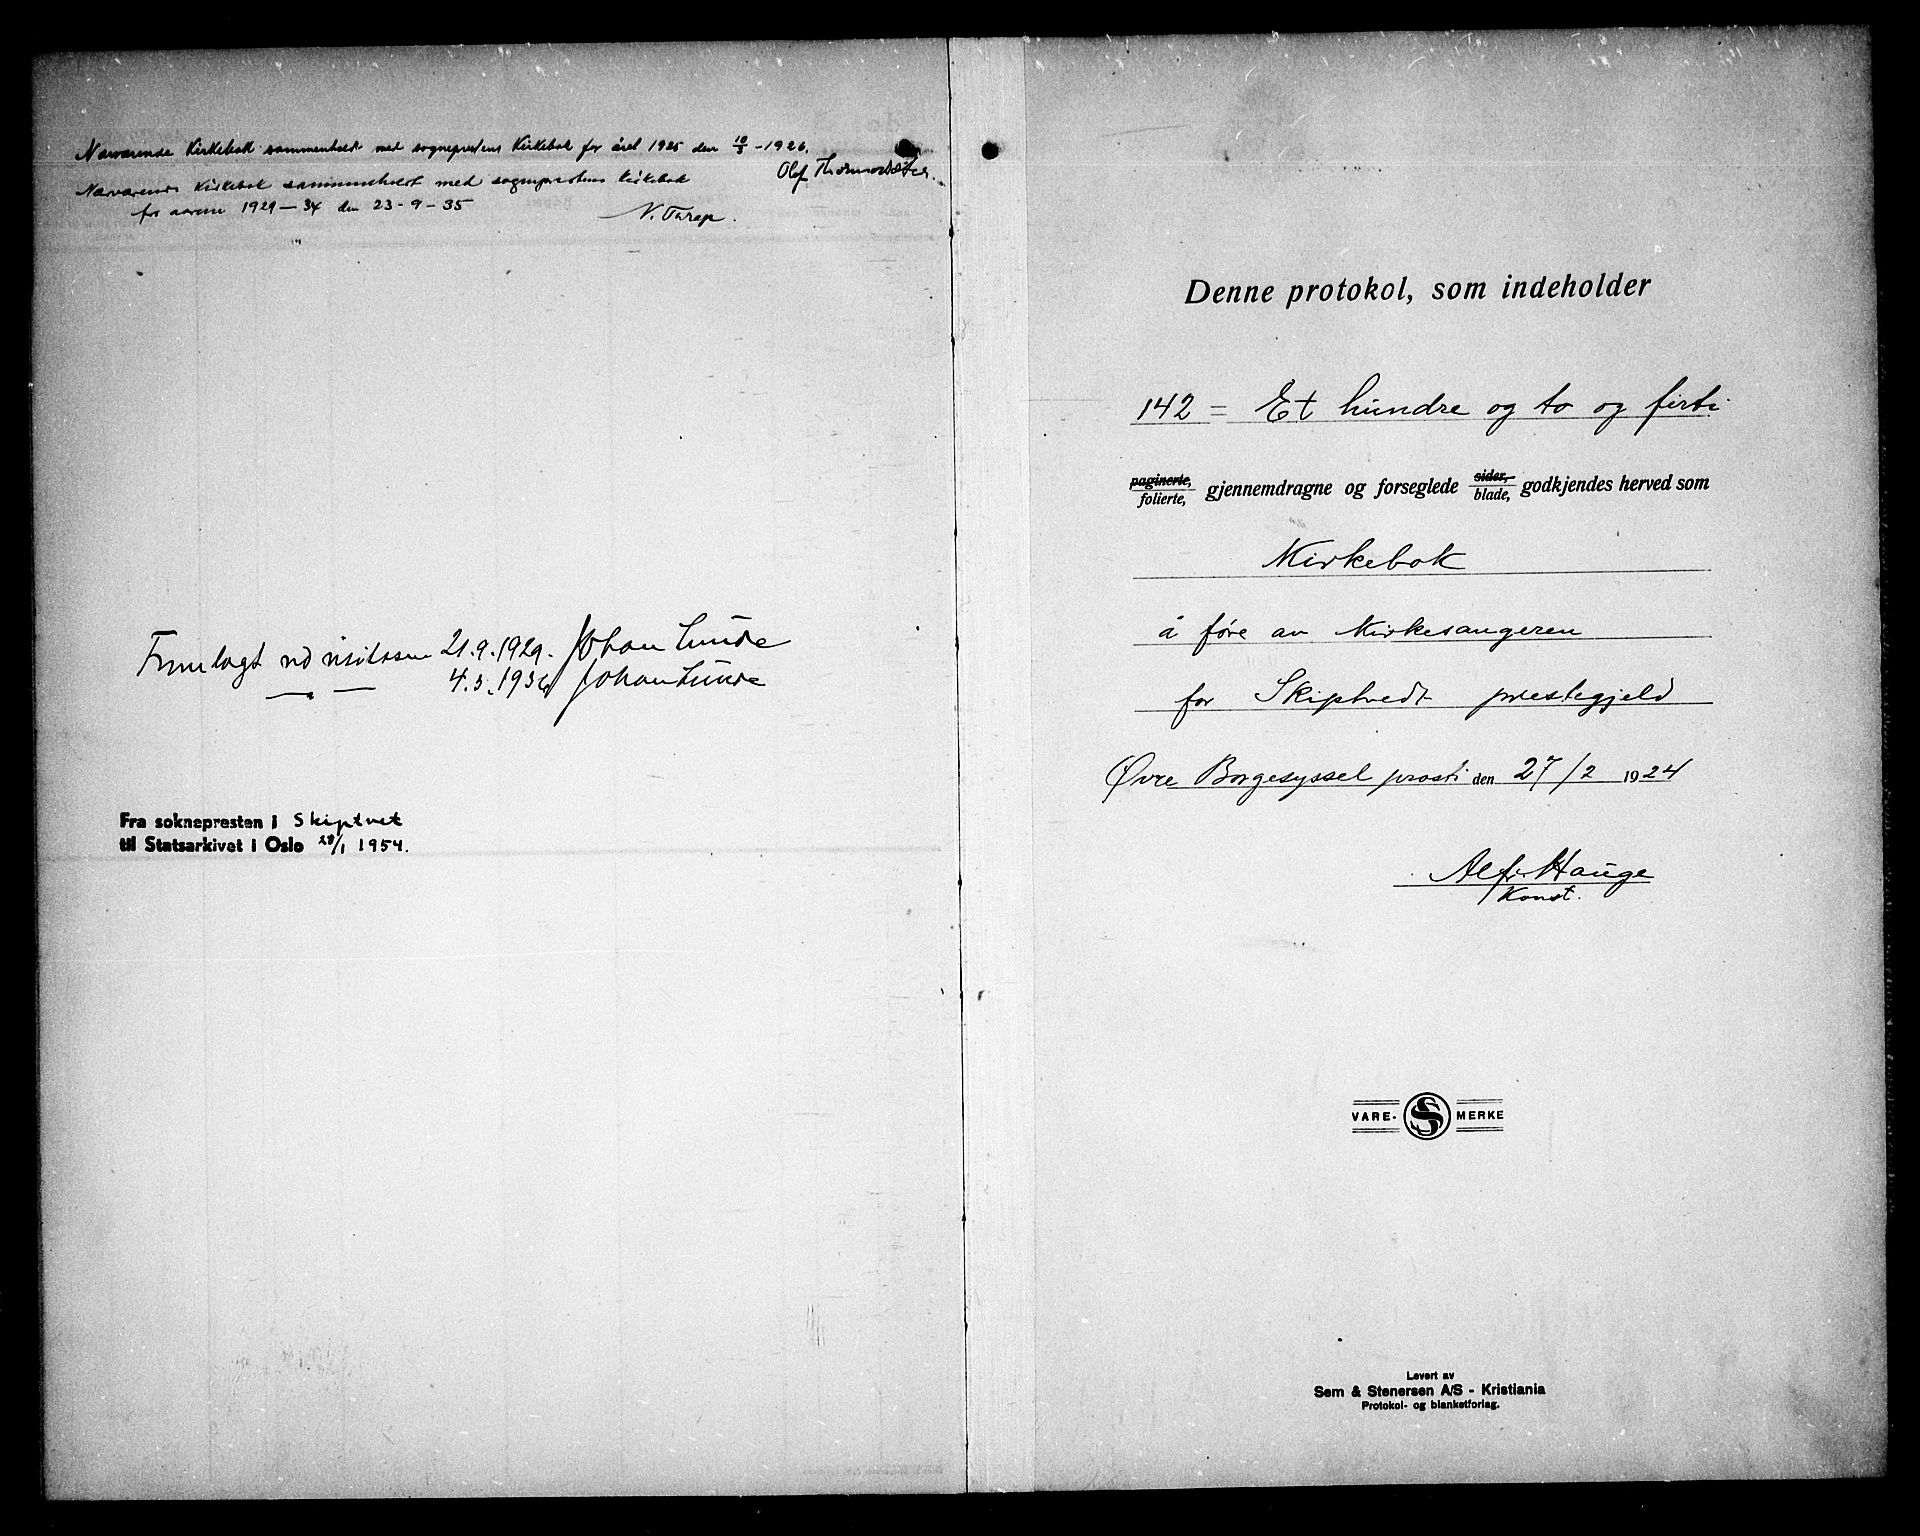 Nærværende Kirkebok sammenholdt med sogneprestens Kirkebok for året 1925 den 10/3 - 1926.
Olaf
Nærværende Kirkebok sammenholdt med sogneprestens Kirkebok
for aarene 1929 — 34 den 23 - 9 - 35
Fremlagt ved visitasen 21.9.1929. Johan Lunde
— " — 4.3.1936 Johan Lunde
Fra soknepresten i Skiptvet
til Statsarkivet i Oslo 28/1 1954.
Denne protokol, som indeholder
142 = Et hundre og to og firti
paginerte, folierte, gjennemdragne og forseglede sider, blade, godkjendes herved som
Kirkebok
å føre av Kirkesangeren
for Skiptvedt prestegjeld
Øvre Borgesyssel prosti den 27/2 1924
Alfr Hauge
Konst.
VARE- S MERKE
Levert av
Sem & Stenersen A/S - Kristiania
Protokol- og blanketforlag.